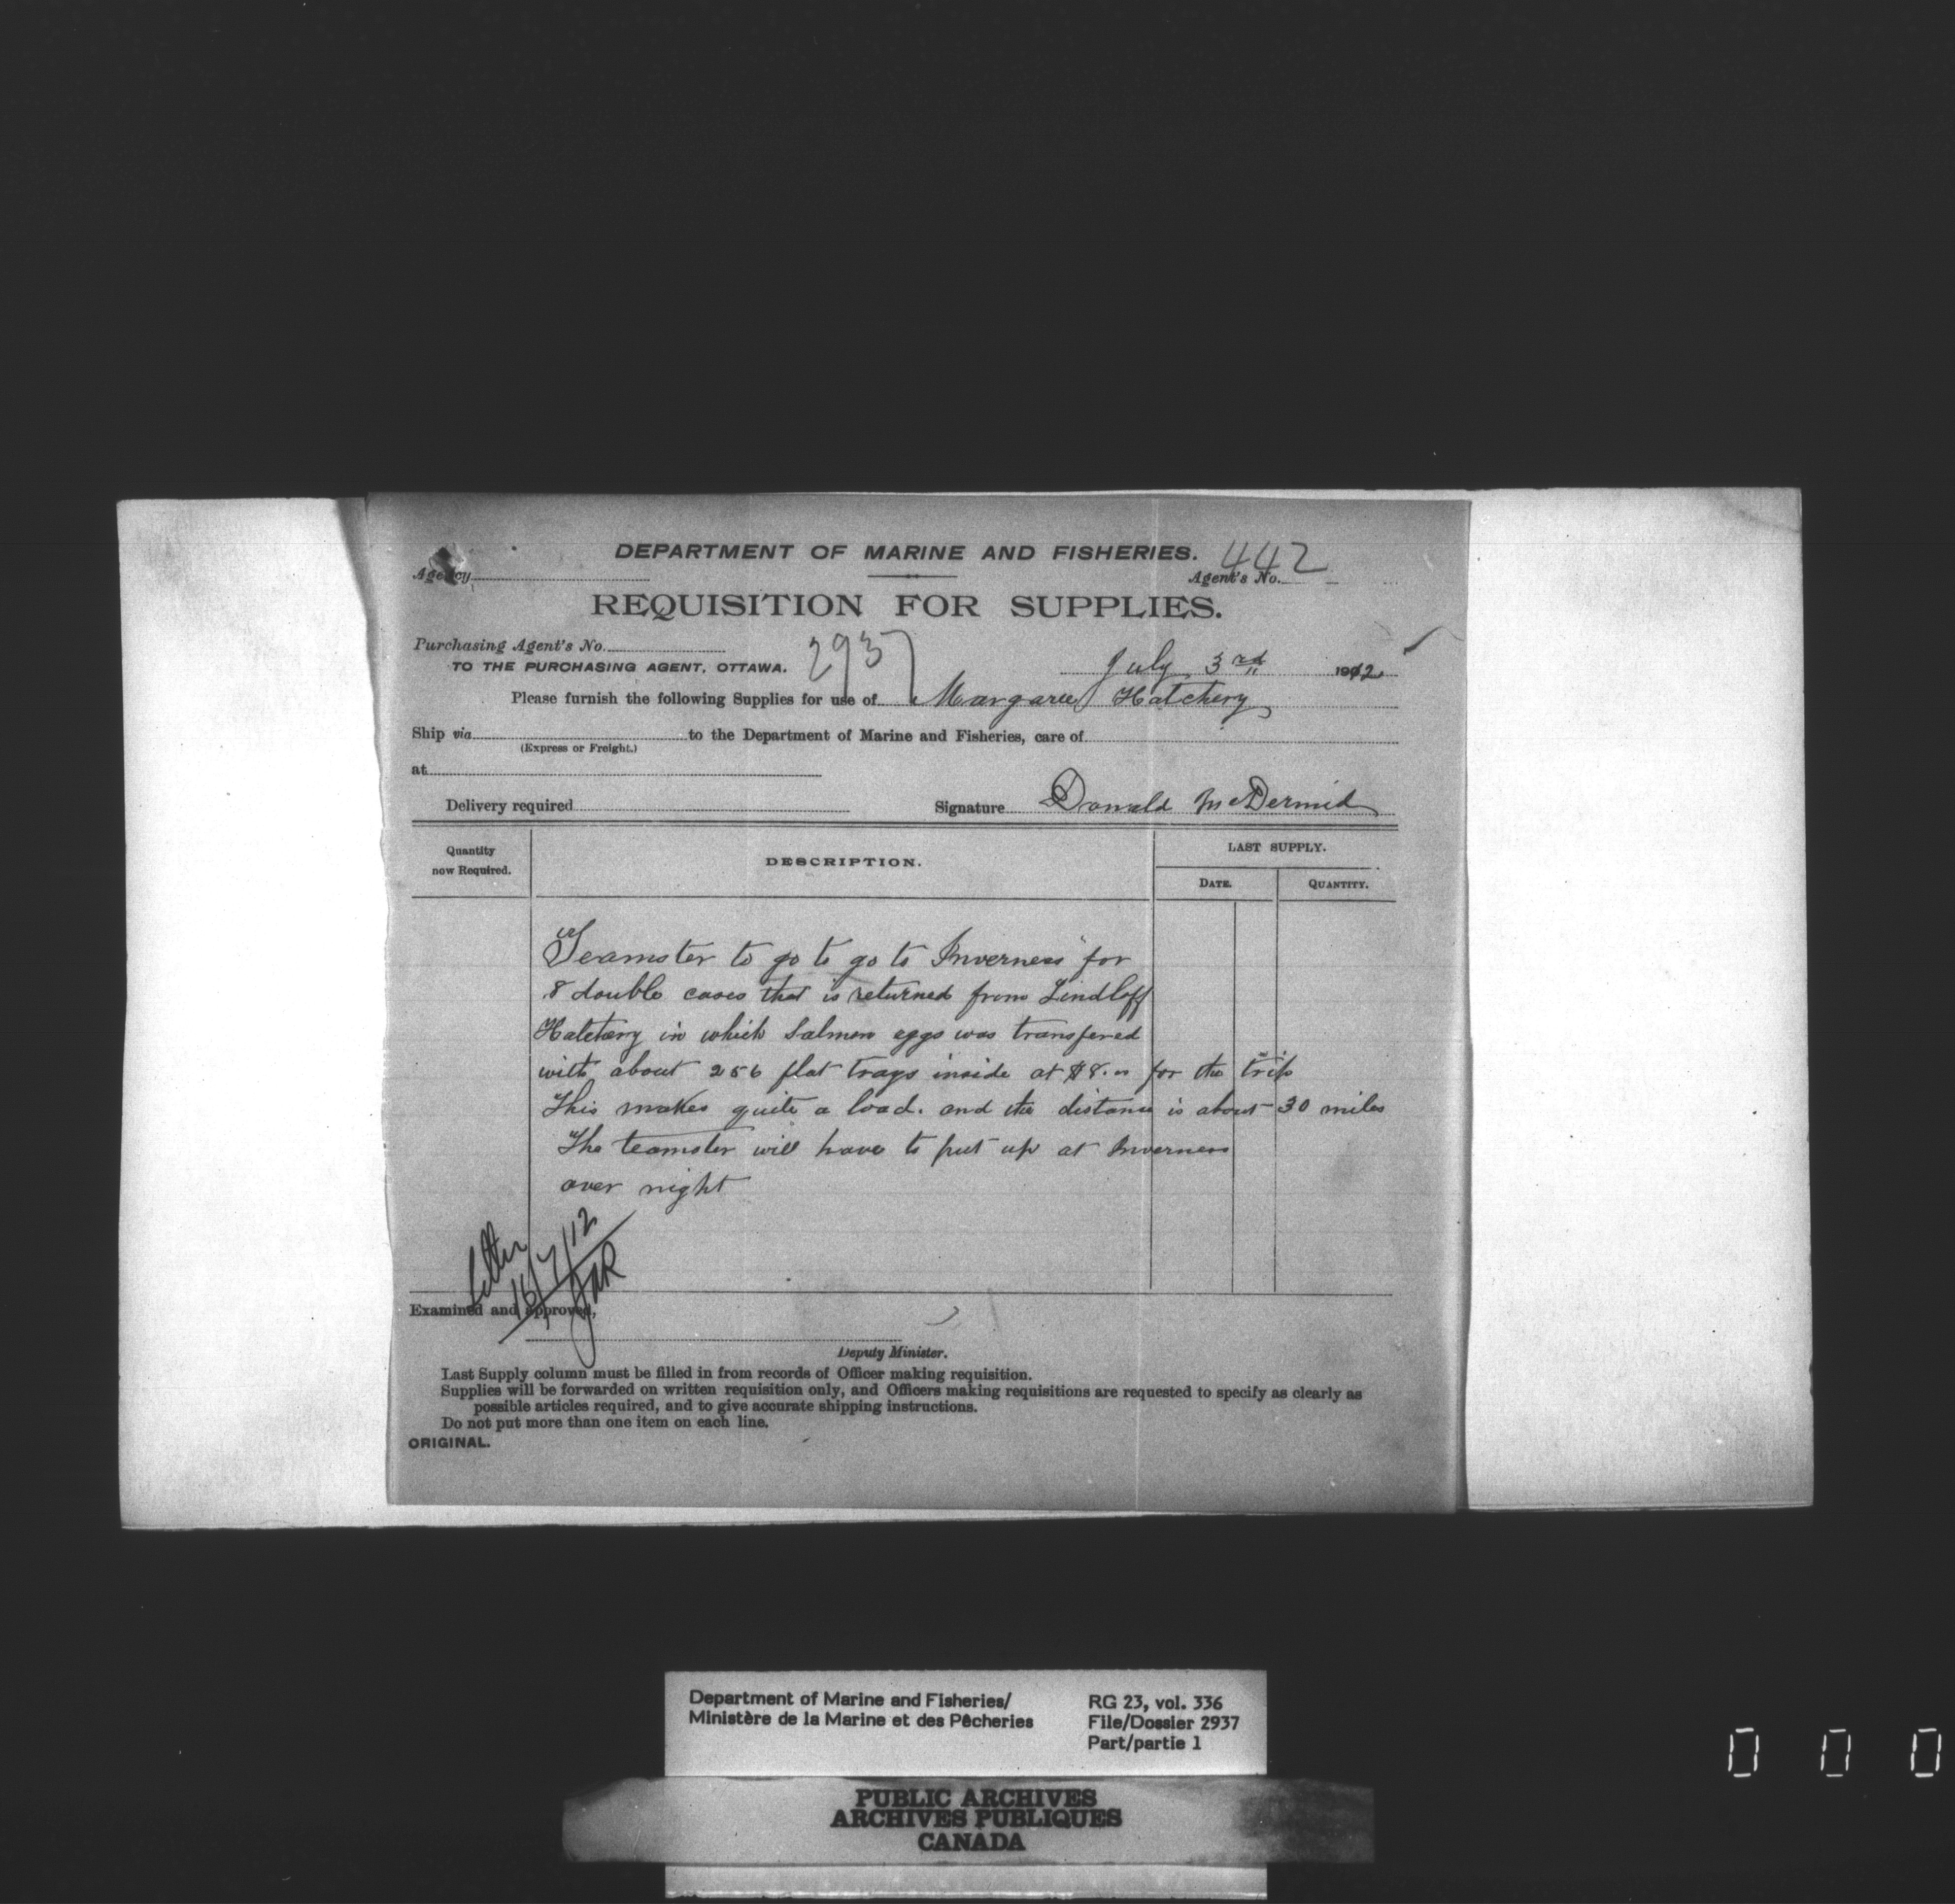 DEPARTMENT OF MARINE AND FISHERIES.
Agency
Agent's No. 442
REQUISITION FOR SUPPLIES.
Purchasing Agent's No.
2937
TO THE PURCHASING AGENT, OTTAWA.
July 3rd 1912
Please furnish the following Supplies for use of Margaree Hatchery
Ship via to the Department of Marine and Fisheries, care of
(Express or Freight.)
at
Delivery required
Signature Donald McDermid
Quantity now Required.
DESCRIPTION.
LAST SUPPLY.
DATE.
QUANTITY.
Teamster to go to go to Inverness for
8 double cases that is returned from Lindloff
Hatchery in which Salmon eggs was transfered
with about 256 flat trays inside at $8.00 for the trip
This makes quite a load. and the distance is about 30 miles
The teamster will have to put up at Inverness
over night
Letter
16/7/12
JAR
Examined and approved,
Deputy Minister.
Last Supply column must be filled in from records of Officer making requisition.
Supplies will be forwarded on written requisition only, and Officers making requisitions are requested to specify as clearly as
possible articles required, and to give accurate shipping instructions.
Do not put more than one item on each line.
ORIGINAL.
Department of Marine and Fisheries/
Ministère de la Marine et des Pêcheries
RG 23, vol. 336
File/Dossier 2937
Part/partie 1
PUBLIC ARCHIVES
ARCHIVES PUBLIQUES
CANADA
0 0 0